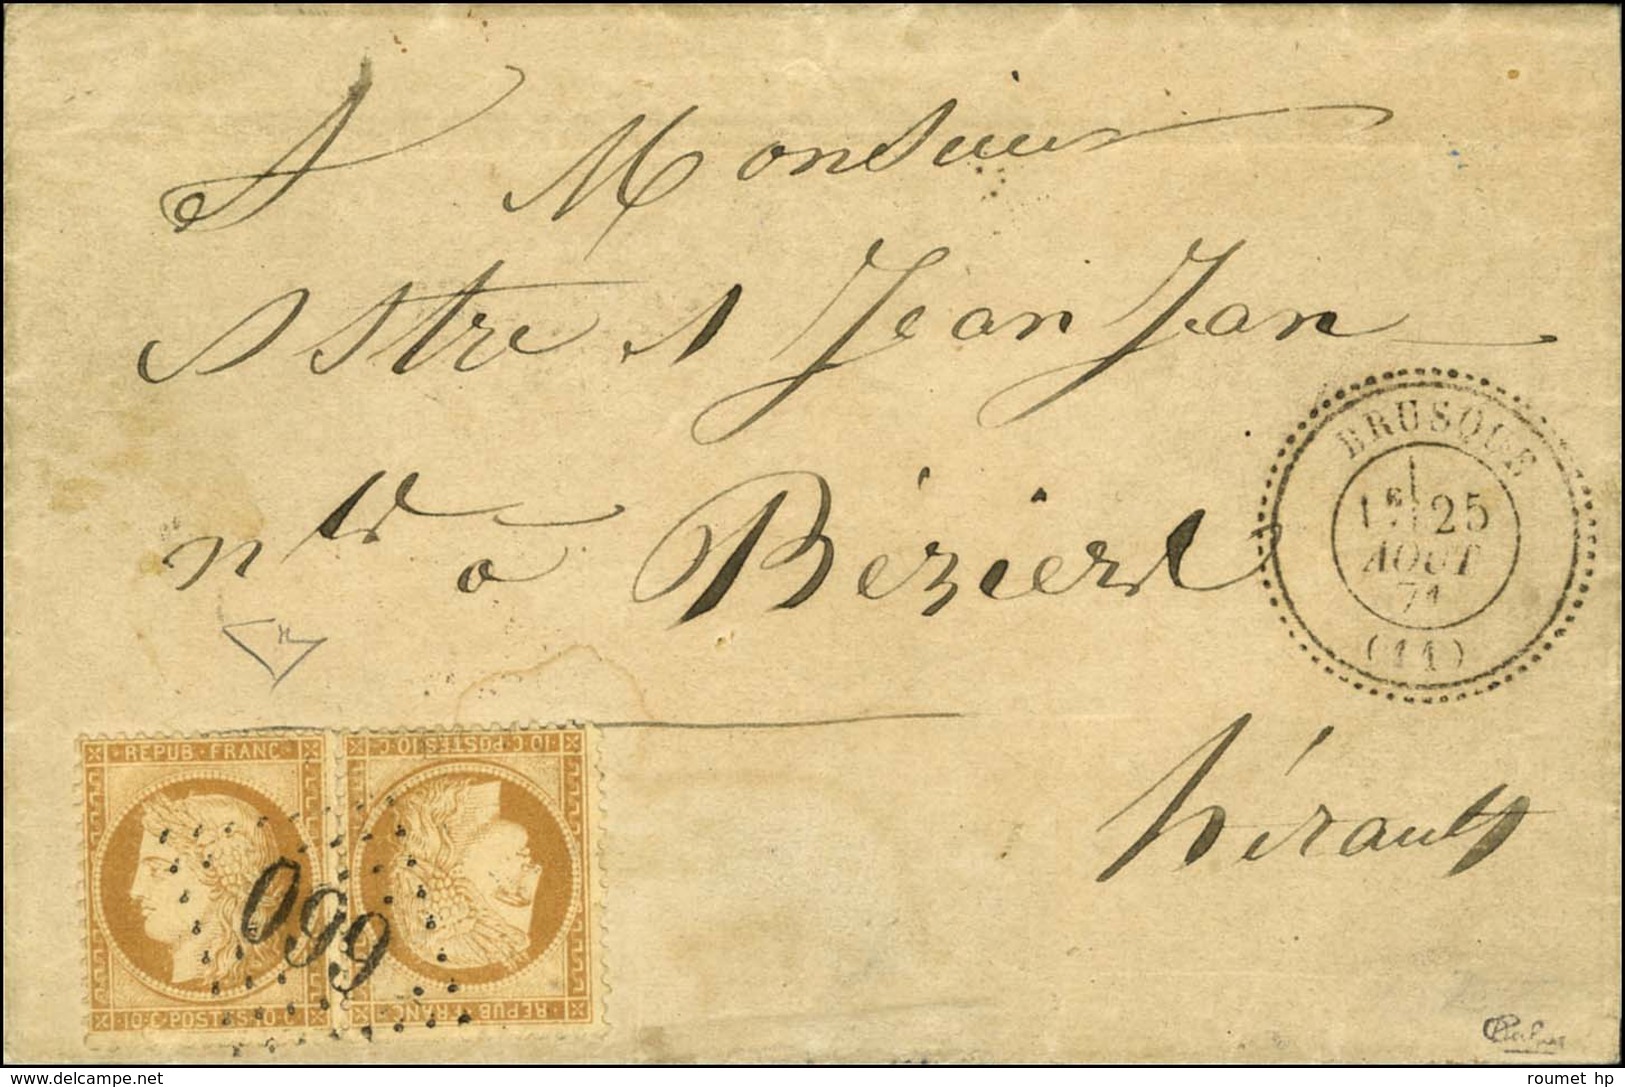 A Monsieur
Astre s Jean Jan
nt à Béziers
BRUSQUE
1E 25
AOUT
71
(11)
Hérault
REPUB·FRANC
10·C·POSTES·10·C
10·C·POSTES·10·C
REPUB·FRANC
660
delcampe.net
roumet hp